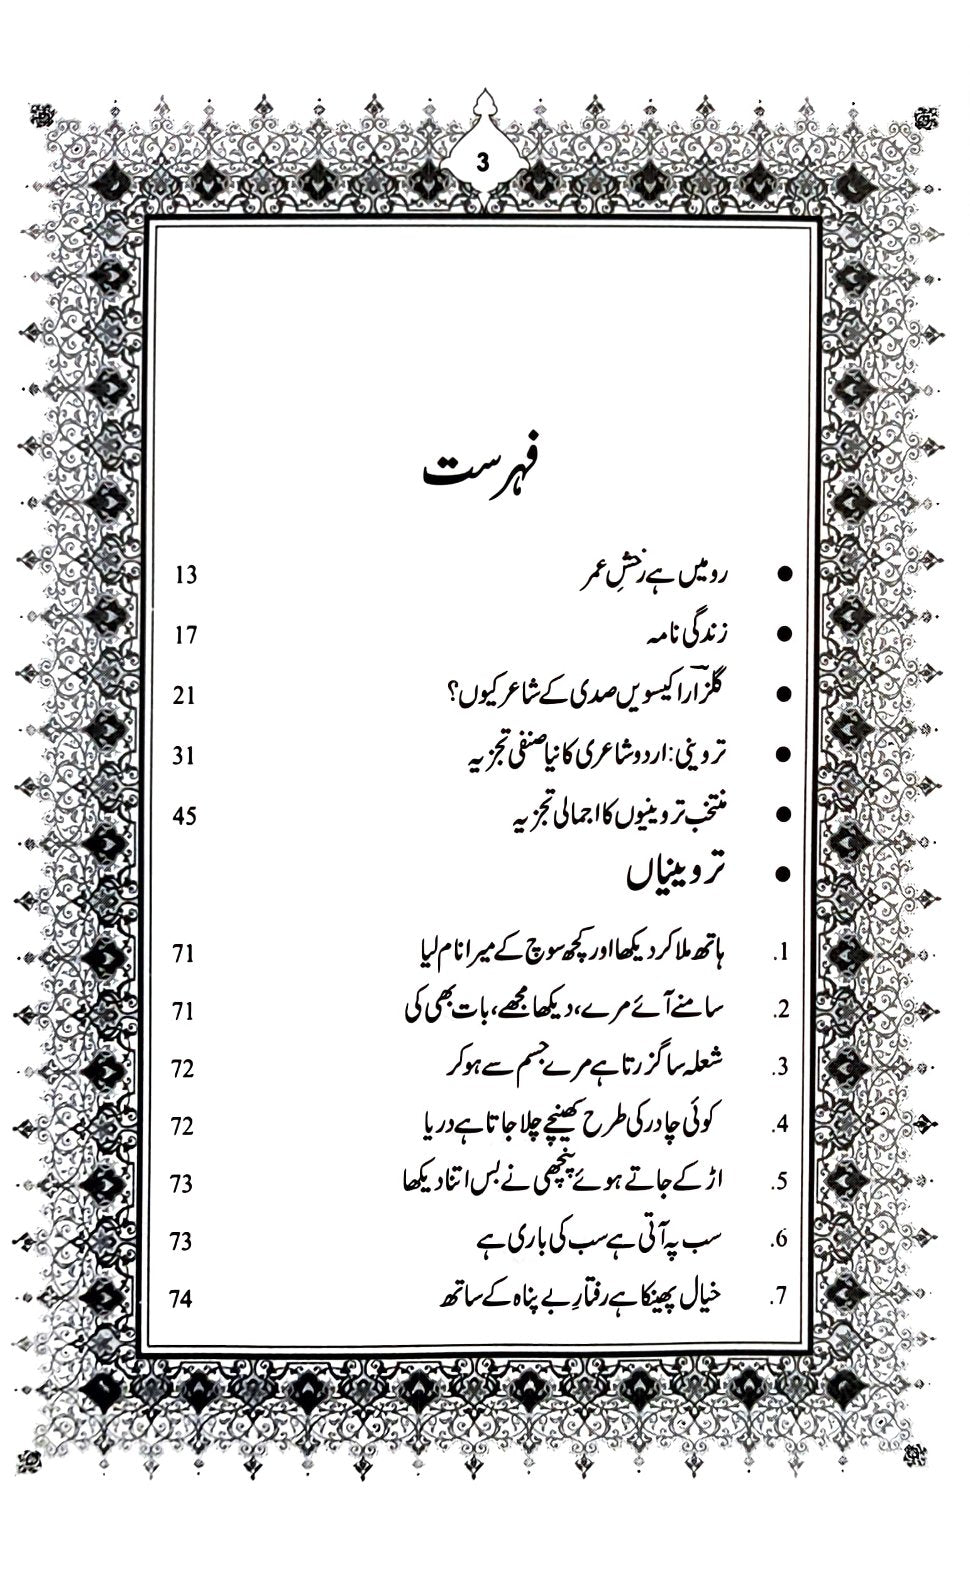 3
فہرست
● رو میں ہے رخشِ عمر 13
● زندگی نامہ 17
● گلزار اکیسویں صدی کے شاعر کیوں؟ 21
● تروینی: اردو شاعری کا نیا صنفی تجزیہ 31
● منتخب تروینیوں کا اجمالی تجزیہ 45
● تروینیاں
1. ہاتھ ملا کر دیکھا اور کچھ سوچ کے میرا نام لیا 71
2. سامنے آئے مرے، دیکھا مجھے، بات بھی کی 71
3. شعلہ سا گزرتا ہے مرے جسم سے ہو کر 72
4. کوئی چادر کی طرح کھینچے چلا جاتا ہے دریا 72
5. اڑ کے جاتے ہوئے پنچھی نے بس اتنا دیکھا 73
6. سب پہ آتی ہے سب کی باری ہے 73
7. خیال پھینکا ہے رفتارِ بے پناہ کے ساتھ 74